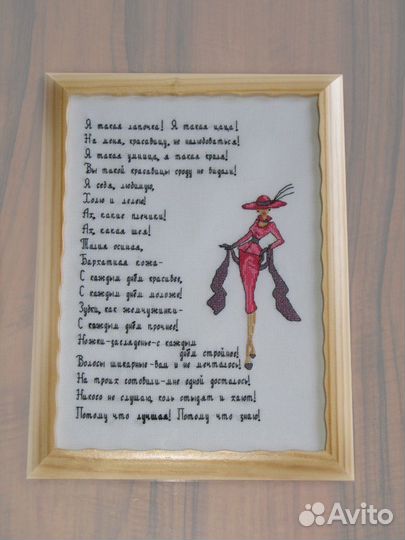 Я такая лапочка! Я такая цаца!
На меня, красавицу, не налюбоваться!
Я такая умница, я такая краля!
Вы такой красавицы сроду не видали!
Я себя, любимую,
Холю и лелею!
Ах, какие плечики!
Ах, какая шея!
Талия осиная,
Бархатная кожа-
С каждым днём красивее,
С каждым днём моложе!
Зубки, как жемчужинки-
С каждым днём прочнее!
Ножки-загляденье-с каждым
днём стройнее!
Волосы шикарные-вам и не мечталось!
На троих готовили-мне одной досталось!
Никого не слушаю, коль стыдят и хают!
Потому что лучшая! Потому что знаю!
Avito